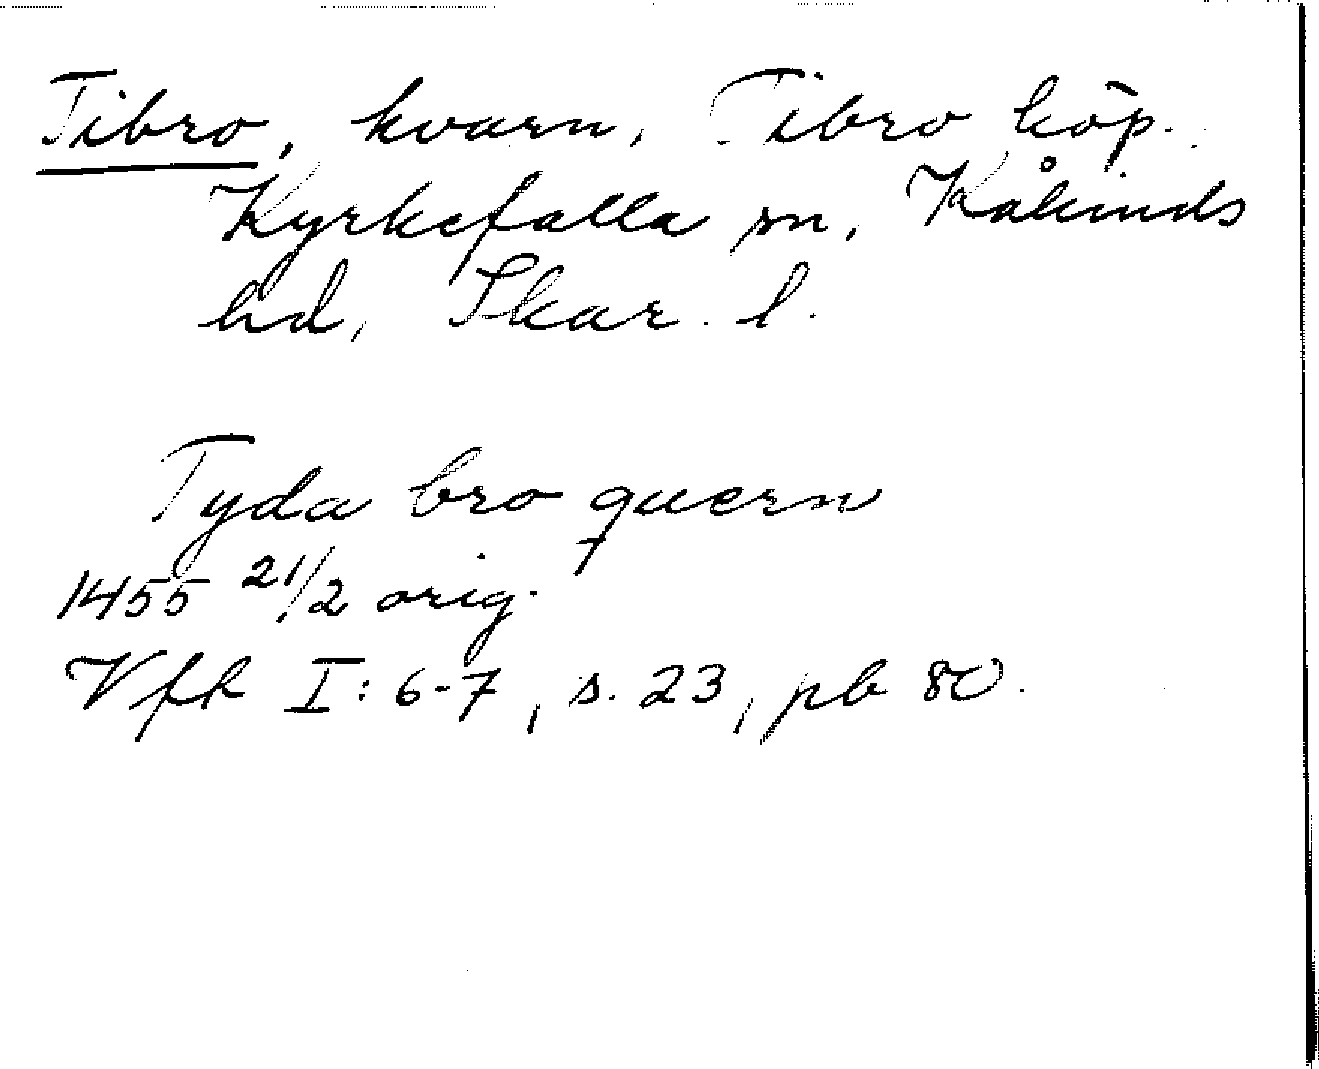 Tibro, kvarn, Tibro köp.
Kyrkefalla sn, Kåkinds
hd, Skar. l.
Tyda bro quern
1455 21/2 orig.
Vfk I: 6-7, s. 23, pb 80.